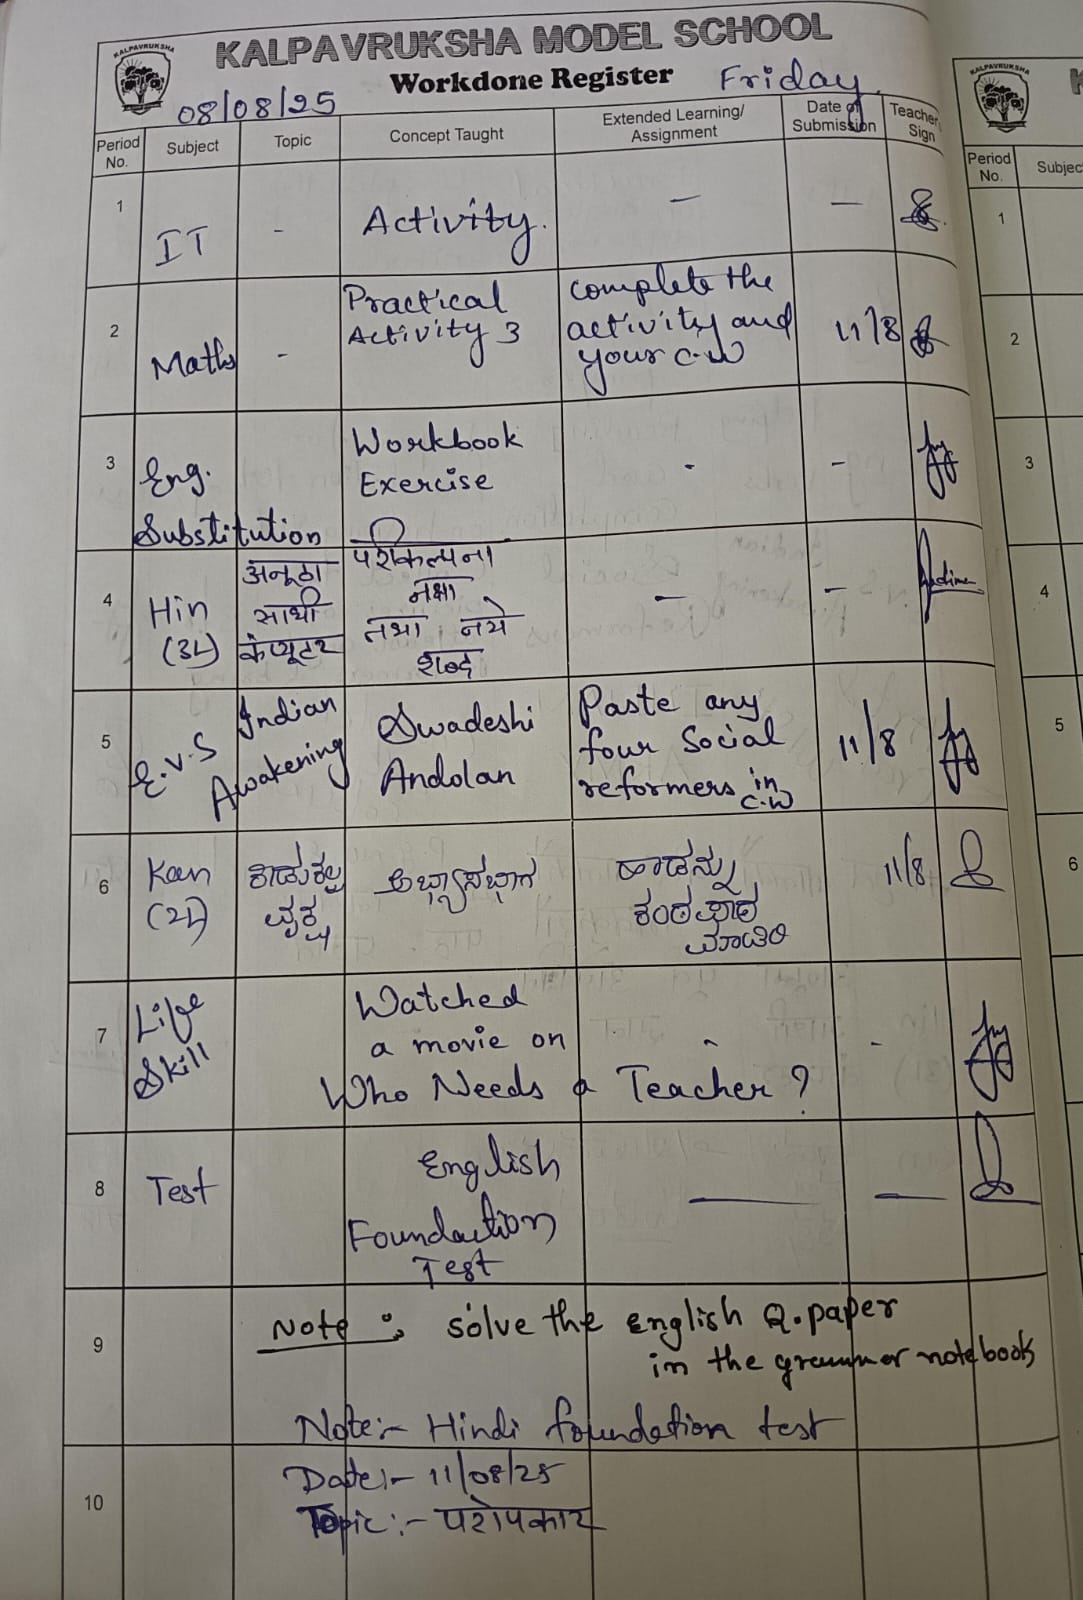 KALPAVRUKSHA MODEL SCHOOL
KALPAVRUKSHA
Workdone Register
Friday
08/08/25
Period No. Subject Topic Concept Taught Extended Learning/ Assignment Date of Submission Teacher Sign
1 IT - Activity. - -
2 Maths - Practical Activity 3 complete the activity and your C.W 11/8
3 Eng. Substitution Workbook Exercise - -
4 Hin (3L) अनूठा साथी कंप्यूटर परिकल्पना नक्षा तथा नये शब्द - -
5 E.V.S Indian Awakening Swadeshi Andolan Paste any four Social reformers in C.W 11/8
6 Kan (2L) ವೃಕ್ಷ ಅಭ್ಯಾಸಭಾಗ ಹಾಡನ್ನು ಕಂಠಪಾಠ ಮಾಡಿರಿ 11/8
7 Life Skill Watched a movie on Who Needs a Teacher? - -
8 Test English Foundaction Test — —
9 Note :- solve the English Q.paper
in the grammer notebook
Note:- Hindi foundation test
10 Date:- 11/08/25
Topic:- परोपकार
KALPAVRUKSHA
K
Period No. Subjec
1
2
3
4
5
6